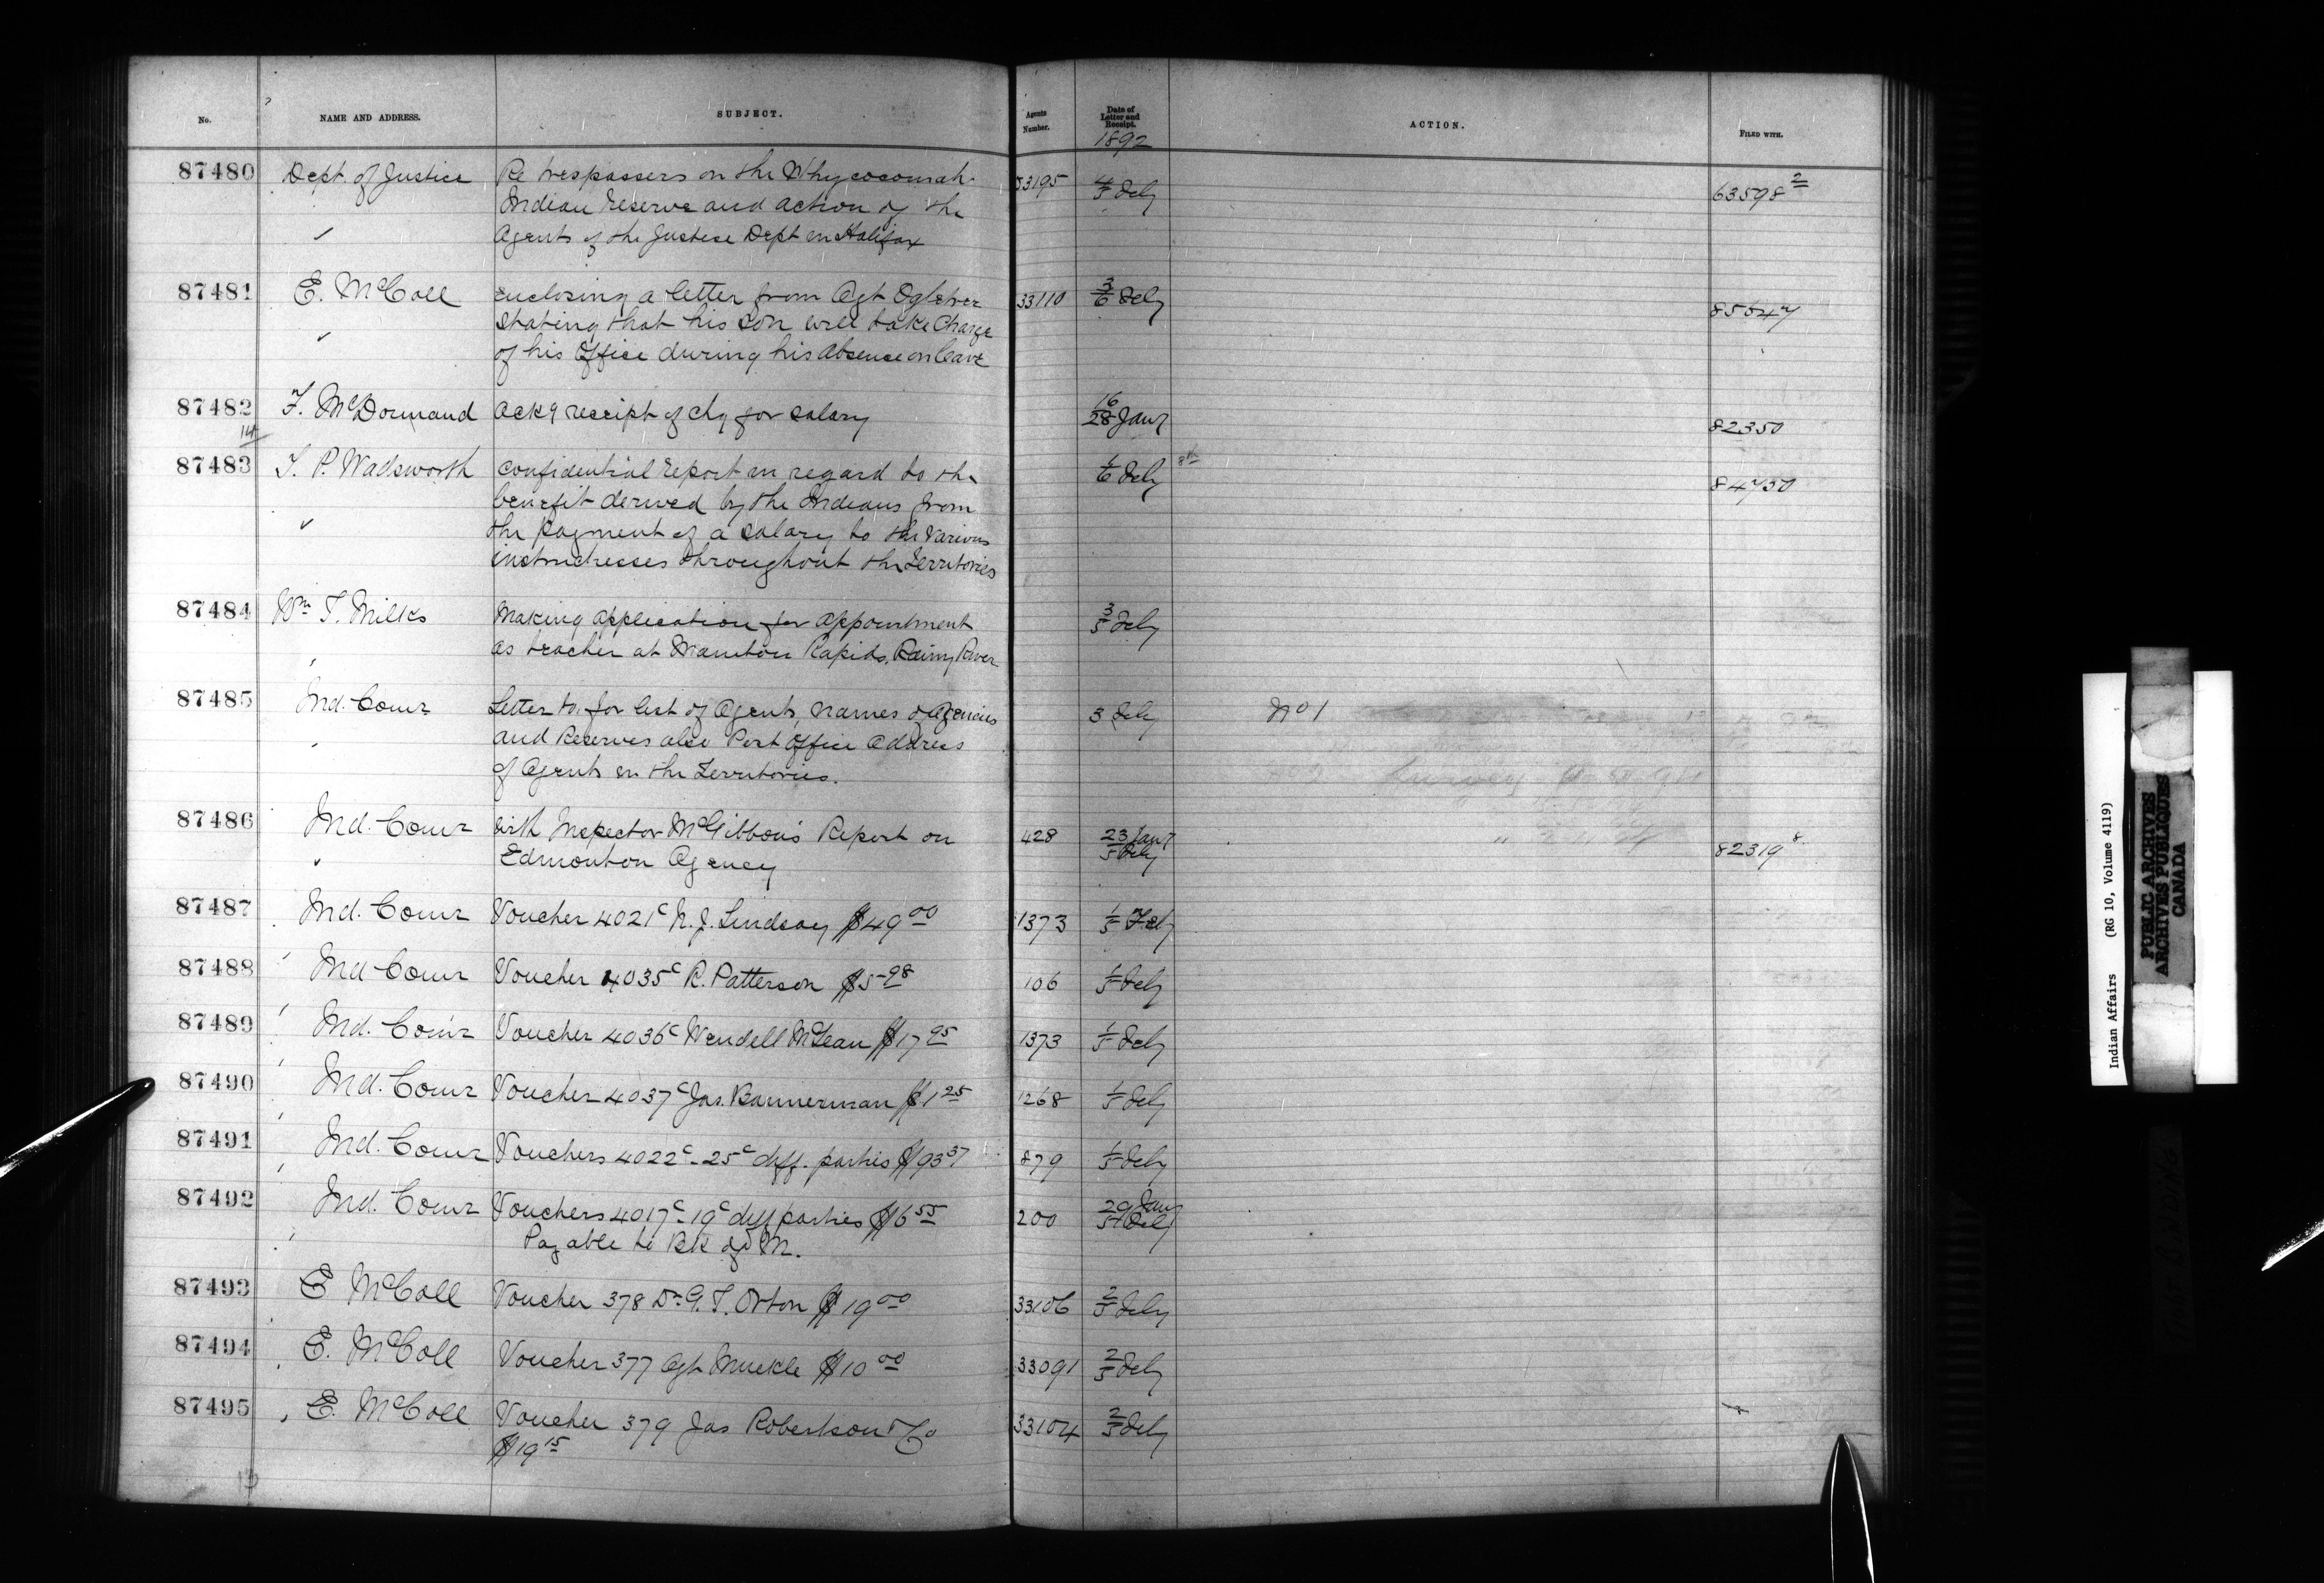 No. NAME AND ADDRESS. SUBJECT. Agents Number. Date of Letter and Receipt. ACTION. FILED WITH.
1892
87480 Dept. of Justice Re trespassers on the Whycocomah 33195 4/5 Feby 63598 2
Indian Reserve and action of the
Agents of the Justice Dept in Halifax
87481 E. McColl Enclosing a letter from Agt Ogletree 33110 3/6 Feby
stating that his son will take Charge
of his Office during his absence on leave
87482 F. McDormand Ackg receipt of chq for salary 16/28 Jany 82350
14
87483 T. P. Wadsworth Confidential report in regard to the 1/6 Feby 84750
benefit derived by the Indians from
" the payment of a salary to the various
instructresses throughout the Territories
87484 Wm. T. Milks Making application for appointment 3/5 Feby
as teacher at Manitou Rapids, Rainy River
87485 Ind. Comr Letter to for list of Agents, names of Agencies 3 Feby No 1
and Reserves also Post Office address
of Agents in the Territories.
87486 Ind. Comr with Inspector McGibbon's Report on 428 23 Jany/5 Feby 82319 8
" Edmonton Agency
87487 Ind. Comr Voucher 4021c N. J. Lindsay $49 00 1373 1/5 Feby
87488 Ind Comr Voucher 4035c R. Patterson $5 98 106 1/5 Feby
87489 Ind. Comr Voucher 4036c Wendell McLean $17 95 1373 1/5 Feby
87490 Ind. Comr Voucher 4037c Jas. Bannerman $1 25 1268 1/5 Feby
87491 Ind. Comr Vouchers 4022c - 25c diff. parties $93 37 879 1/5 Feby
87492 Ind. Comr Vouchers 4017c - 19c diff parties $6 55 200 29 Jany/5 Feby
Payable to Bk of M.
87493 E McColl Voucher 378 Dr. G. T. Orton $19 00 33106 2/5 Feby
87494 E. McColl Voucher 377 Agt Muckle $10 00 33091 2/5 Feby
87495 E. McColl Voucher 379 Jas Robertson & Co 33104 2/5 Feby
$19 15
Indian Affairs (RG 10, Volume 4119)
PUBLIC ARCHIVES
ARCHIVES PUBLIQUES
CANADA